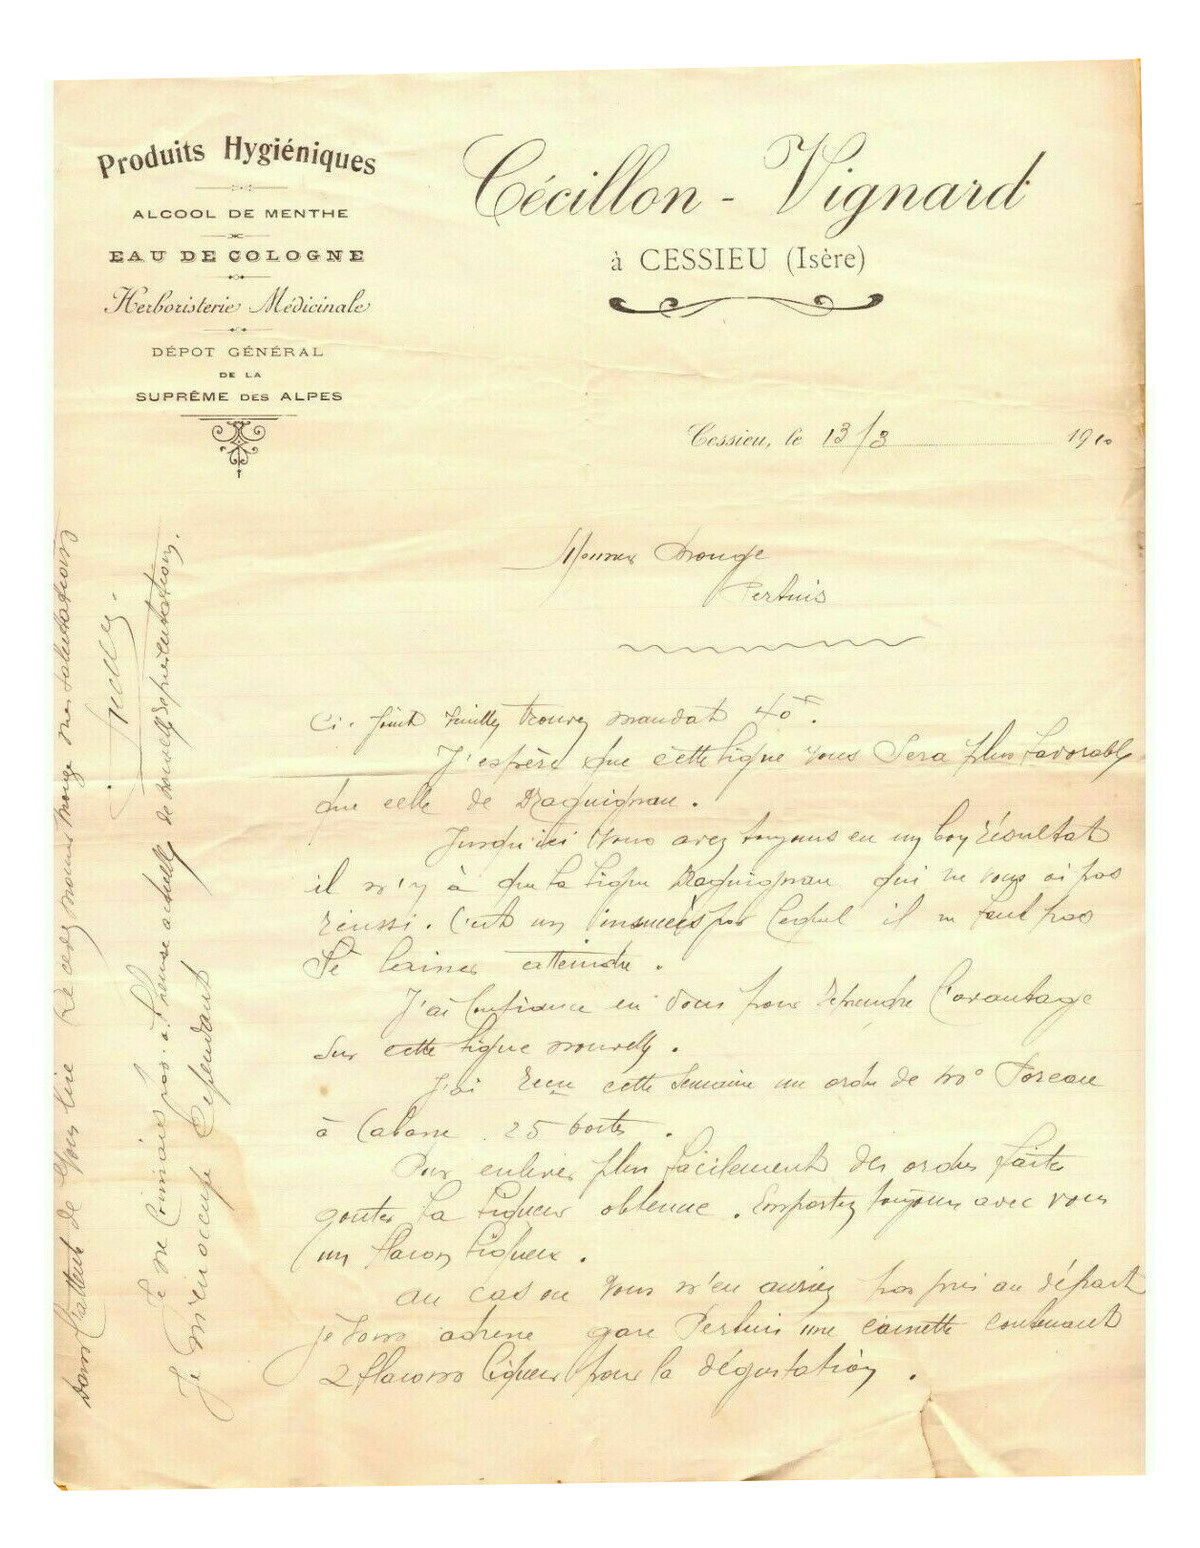 Produits Hygiéniques
ALCOOL DE MENTHE
EAU DE COLOGNE
Herboristerie Médicinale
DÉPOT GÉNÉRAL
DE LA
SUPRÊME DES ALPES
Cécillon - Vignard
à CESSIEU (Isère)
Cessieu, le 13/3 1910
Monsieur
Pertuis
Ci-joint veuillez trouvez mandat 40 f.
J'espère que cette ligne vous sera plus favorable
que celle de Draguignan.
Jusqu'ici vous avez toujours eu un bon résultat
il n'y à que la ligne Draguignan qui ne vous ai pas
réussi. C'est un insuccès par lequel il ne faut pas
se laisser atteindre.
J'ai confiance en vous pour reprendre l'avantage
sur cette ligne nouvelle.
J'ai reçu cette semaine un ordre de Mo
à 25 boites.
Pour enlever plus facilement des ordres faites
gouter la liqueur obtenue. Emportez toujours avec vous
un flacon liqueur.
au cas ou vous n'en auriez pas pris au départ
je vous adresse gare Pertuis une caissette contenant
2 flacons liqueur pour la dégustation.
Je ne connais pas à l'heure actuelle de nouvelles représentations.
Je m'en occupe cependant
Dans l'attente de vous lire Recevez monsieur mes salutations